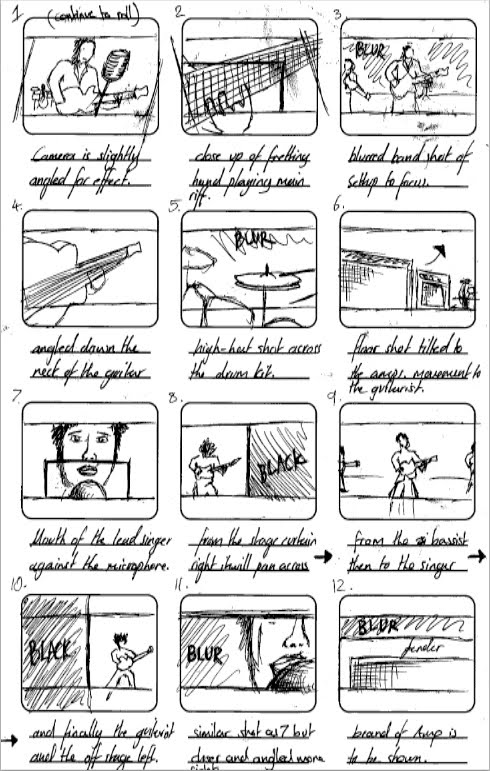 1 (continue to roll)
Camera is slightly
angled for effect.
2.
close up of fretting
hand playing main
riff.
3.
BLUR
blurred band shot of
setup to focus.
4.
angled down the
neck of the guitar
5.
BLUR
high-heat shot across
the drum kit.
6.
floor shot tilted to
the amps. movement to
the guitarist.
7.
Mouth of the lead singer
against the microphone.
8.
BLACK
from the stage curtain
right it will pan across
9.
from the bassist
then to the singer
10.
BLACK
and finally the guitarist
and the off stage left.
11.
BLUR
similar shot as 7 but
closer and angled more
12.
BLUR
fender
brand of Amp is
to be shown.